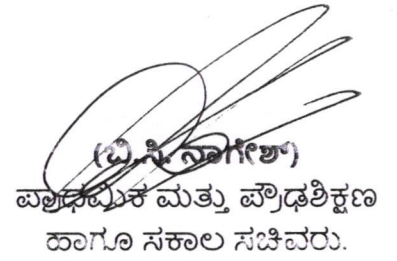 (ಬಿ.ಸಿ. ನಾಗೇಶ್)
ಪ್ರಾಥಮಿಕ ಮತ್ತು ಪ್ರೌಢಶಿಕ್ಷಣ
ಹಾಗೂ ಸಕಾಲ ಸಚಿವರು.